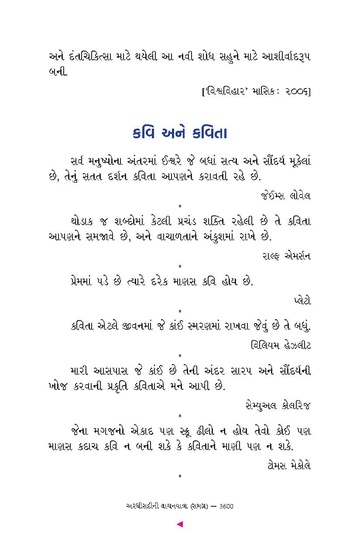 અને દંતચિકિત્સા માટે થયેલી આ નવી શોધ સહુને માટે આશીર્વાદરૂપ
બની.
[‘વિશ્વવિહાર’ માસિક : ૨૦૦૬]
કવિ અને કવિતા
સર્વ મનુષ્યોના અંતરમાં ઈશ્વરે જે બધાં સત્ય અને સૌંદર્ય મૂકેલાં
છે, તેનું સતત દર્શન કવિતા આપણને કરાવતી રહે છે.
જેઈમ્સ લોવેલ
*
થોડાક જ શબ્દોમાં કેટલી પ્રચંડ શક્તિ રહેલી છે તે કવિતા
આપણને સમજાવે છે, અને વાચાળતાને અંકુશમાં રાખે છે.
રાલ્ફ એમર્સન
*
પ્રેમમાં પડે છે ત્યારે દરેક માણસ કવિ હોય છે.
પ્લેટો
*
કવિતા એટલે જીવનમાં જે કાંઈ સ્મરણમાં રાખવા જેવું છે તે બધું.
વિલિયમ હેઝલીટ
*
મારી આસપાસ જે કાંઈ છે તેની અંદર સારપ અને સૌંદર્યની
ખોજ કરવાની પ્રકૃતિ કવિતાએ મને આપી છે.
સેમ્યુઅલ કોલરિજ
*
જેના મગજનો એકાદ પણ સ્ક્રૂ ઢીલો ન હોય તેવો કોઈ પણ
માણસ કદાચ કવિ ન બની શકે કે કવિતાને માણી પણ ન શકે.
ટોમસ મેકોલે
*
અરધીસદીની વાચનયાત્રા (સમગ્ર) — 3600